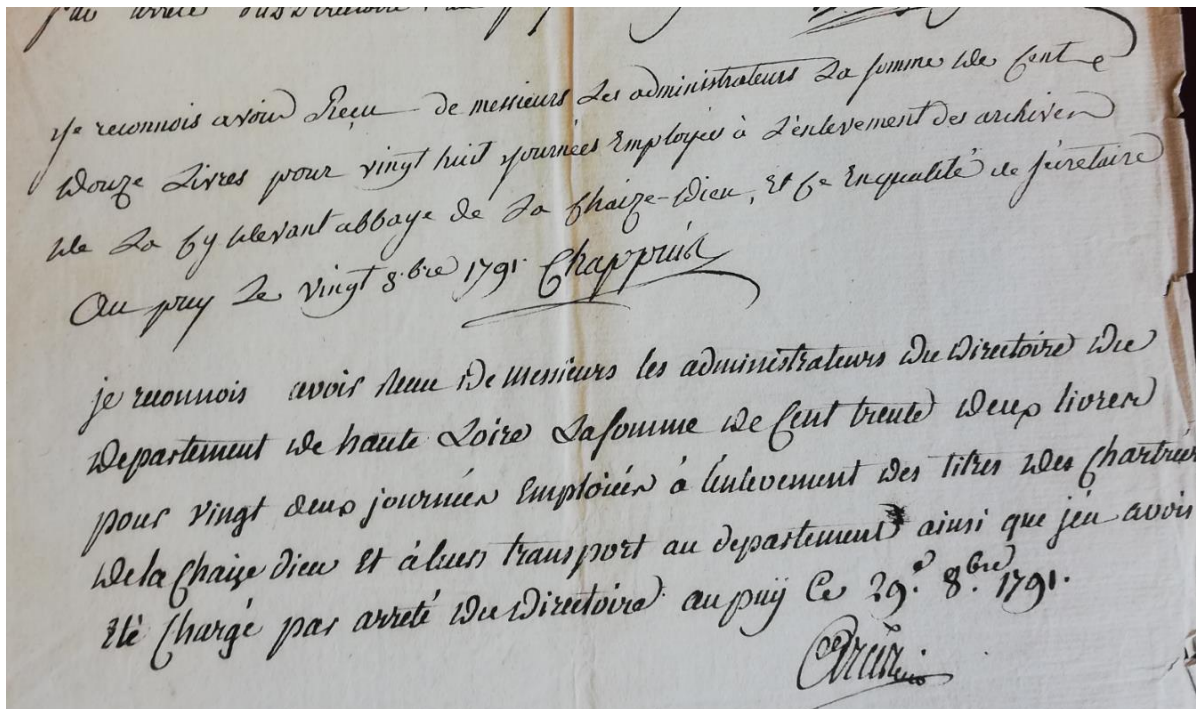 par arreté du Directoire
je reconnois avoir Reçu de messieurs Les administrateurs La somme de Cent
Douze Livres pour vingt huit journées Employés à L'enlevement des archives
de La Cy devant abbaye de La Chaize-Dieu, Et Ce En qualité de Sécretaire
Au puy Le vingt 8.bre 1791. Chappuis
je reconnois avoir reçu De messieurs les administrateurs Du Directoire Du
Departement de haute Loire La somme De Cent trente Deux livres
pour vingt deux journées Emploiées à l'enlevement Des titres Des Chartriers
De la Chaize Dieu Et à leurs transport au departement ainsi que jen avois
été Chargé par arreté Du Directoire au puÿ Ce 29.e 8.bre 1791.